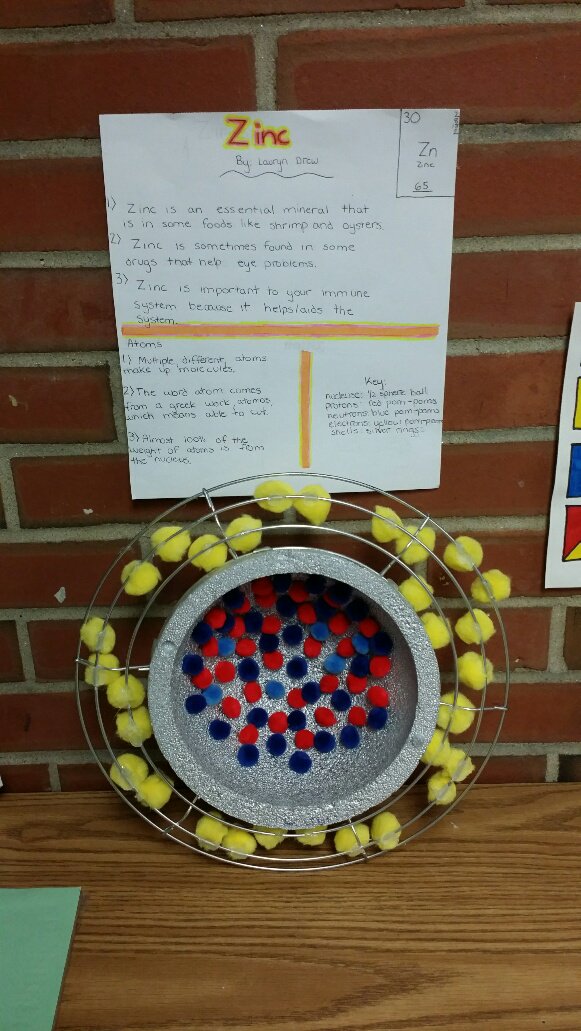 Zinc
By: Lauryn Drew
30
Zn
Zinc
65
1) Zinc is an essential mineral that
is in some foods like shrimp and oysters.
2) Zinc is sometimes found in some
drugs that help eye problems.
3) Zinc is important to your immune
system because it helps/aids the
system.
Atoms
1) Multiple, different, atoms
make up molecules.
2) The word atom comes
from a greek work, atomos,
which means able to cut.
3) Almost 100% of the
weight of atoms is from
the nucleus.
Key:
nucleus: 1/2 sphere ball
protons: red pom-poms
neutrons: blue pom-poms
electrons: yellow pom-poms
shells: silver rings